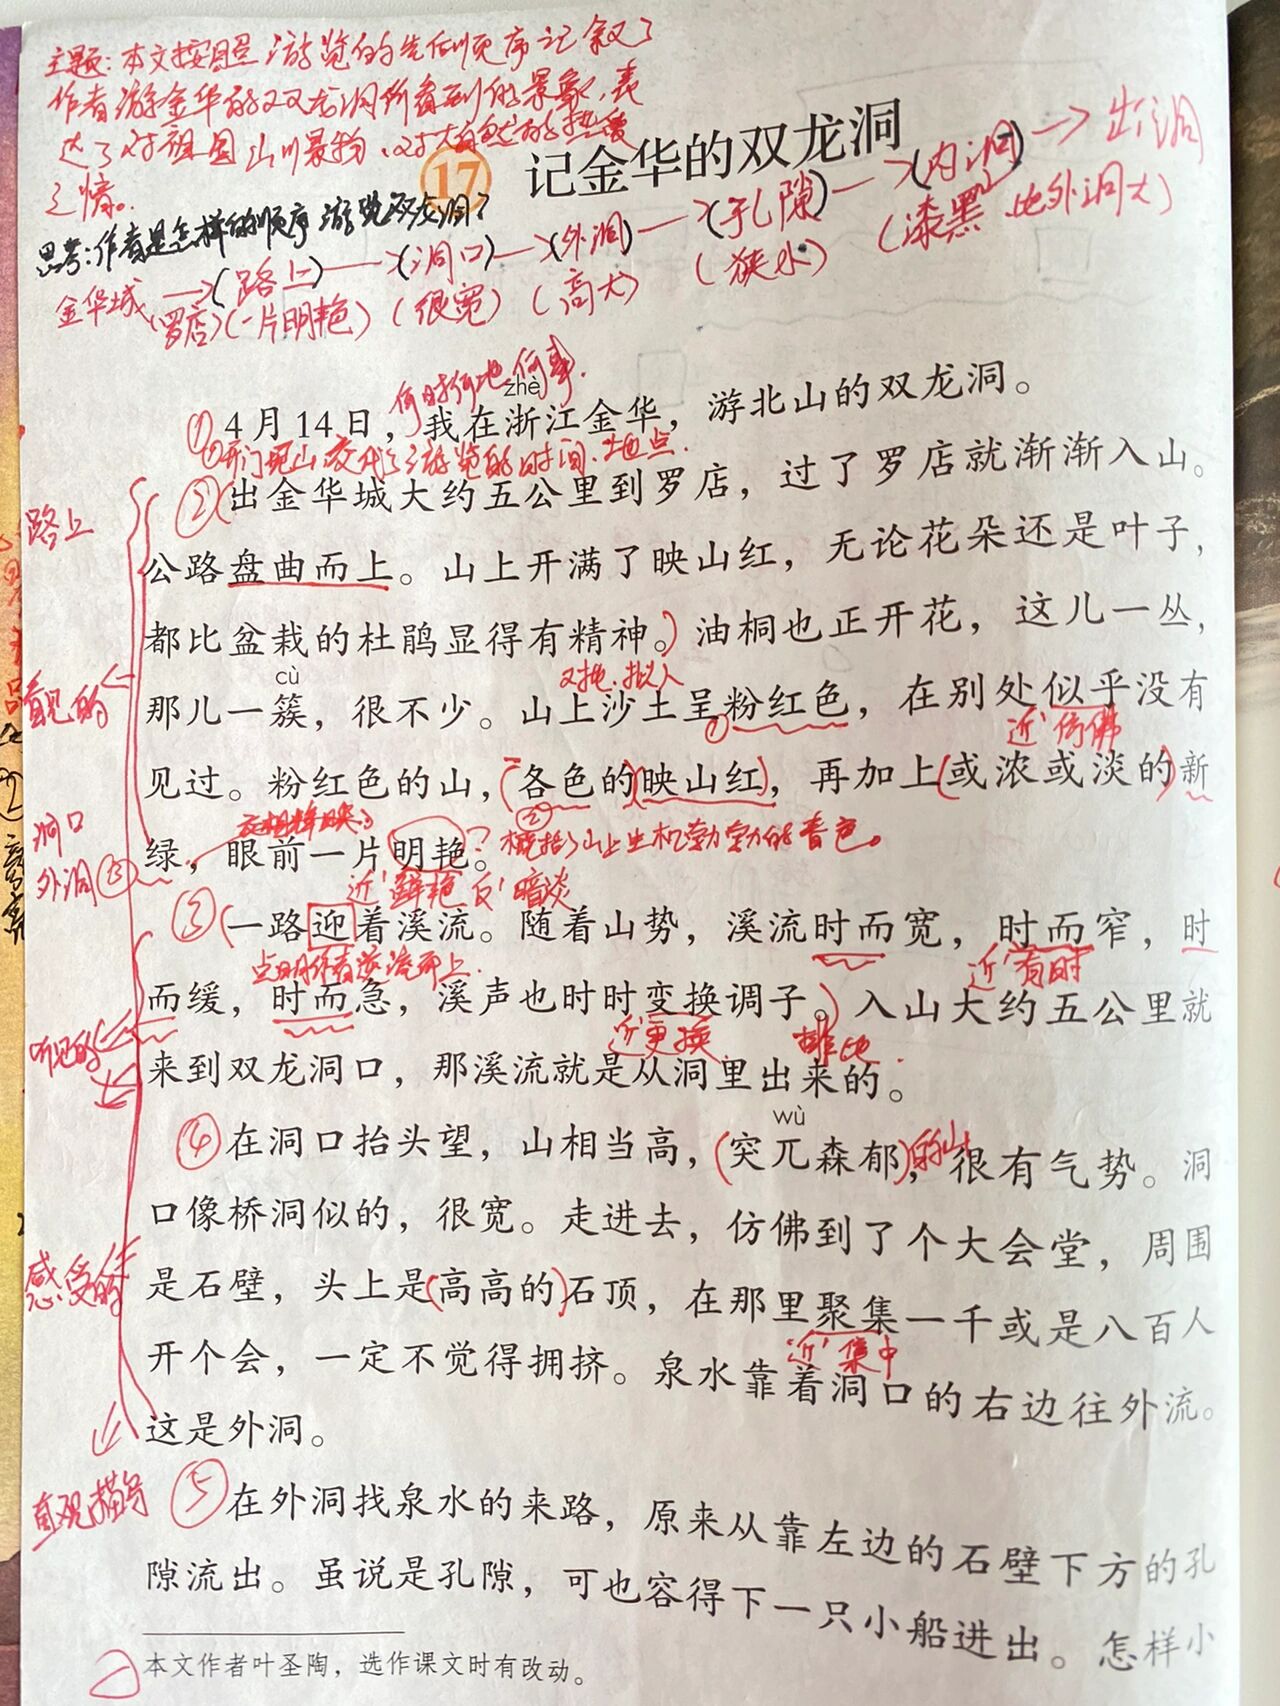 主题:本文按照游览的先后顺序记叙了
作者游金华的双龙洞所看到的景象,表
达了对祖国山川景物、对大自然的热爱
之情。
17 记金华的双龙洞
思考:作者是怎样的顺序游览双龙洞?
金华城→(路上)→(洞口)→(外洞)→(孔隙)→(内洞)→出洞
(罗店)(一片明艳)(很宽)(高大)(狭水)(漆黑、比外洞大)
何时何地何事.
zhè
①4月14日,我在浙江金华,游北山的双龙洞。
开门见山交代了游览的时间、地点.
路上
②(出金华城大约五公里到罗店,过了罗店就渐渐入山。
公路盘曲而上。山上开满了映山红,无论花朵还是叶子,
都比盆栽的杜鹃显得有精神。)油桐也正开花,这儿一丛,
cù
对比、拟人
看见的
那儿一簇,很不少。山上沙土呈粉红色,在别处似乎没有
① 近'仿佛
见过。粉红色的山,(各色的)(映山红),再加上(或浓或淡的)新
② 洞口
外洞③
交相辉映
绿,眼前一片明艳。?概括了山上生机勃勃的春色。
近'鲜艳 反'暗淡
③(一路迎着溪流。随着山势,溪流时而宽,时而窄,时
点明作者逆流而上. 近'有时
而缓,时而急,溪声也时时变换调子。)入山大约五公里就
听见的
近'更换 排比.
来到双龙洞口,那溪流就是从洞里出来的。
wù
④在洞口抬头望,山相当高,(突兀森郁)的山,很有气势。洞
口像桥洞似的,很宽。走进去,仿佛到了个大会堂,周围
感受的
是石壁,头上是(高高的)石顶,在那里聚集一千或是八百人
近'集中
开个会,一定不觉得拥挤。泉水靠着洞口的右边往外流。
这是外洞。
直观描写
⑤在外洞找泉水的来路,原来从靠左边的石壁下方的孔
隙流出。虽说是孔隙,可也容得下一只小船进出。怎样小
本文作者叶圣陶,选作课文时有改动。